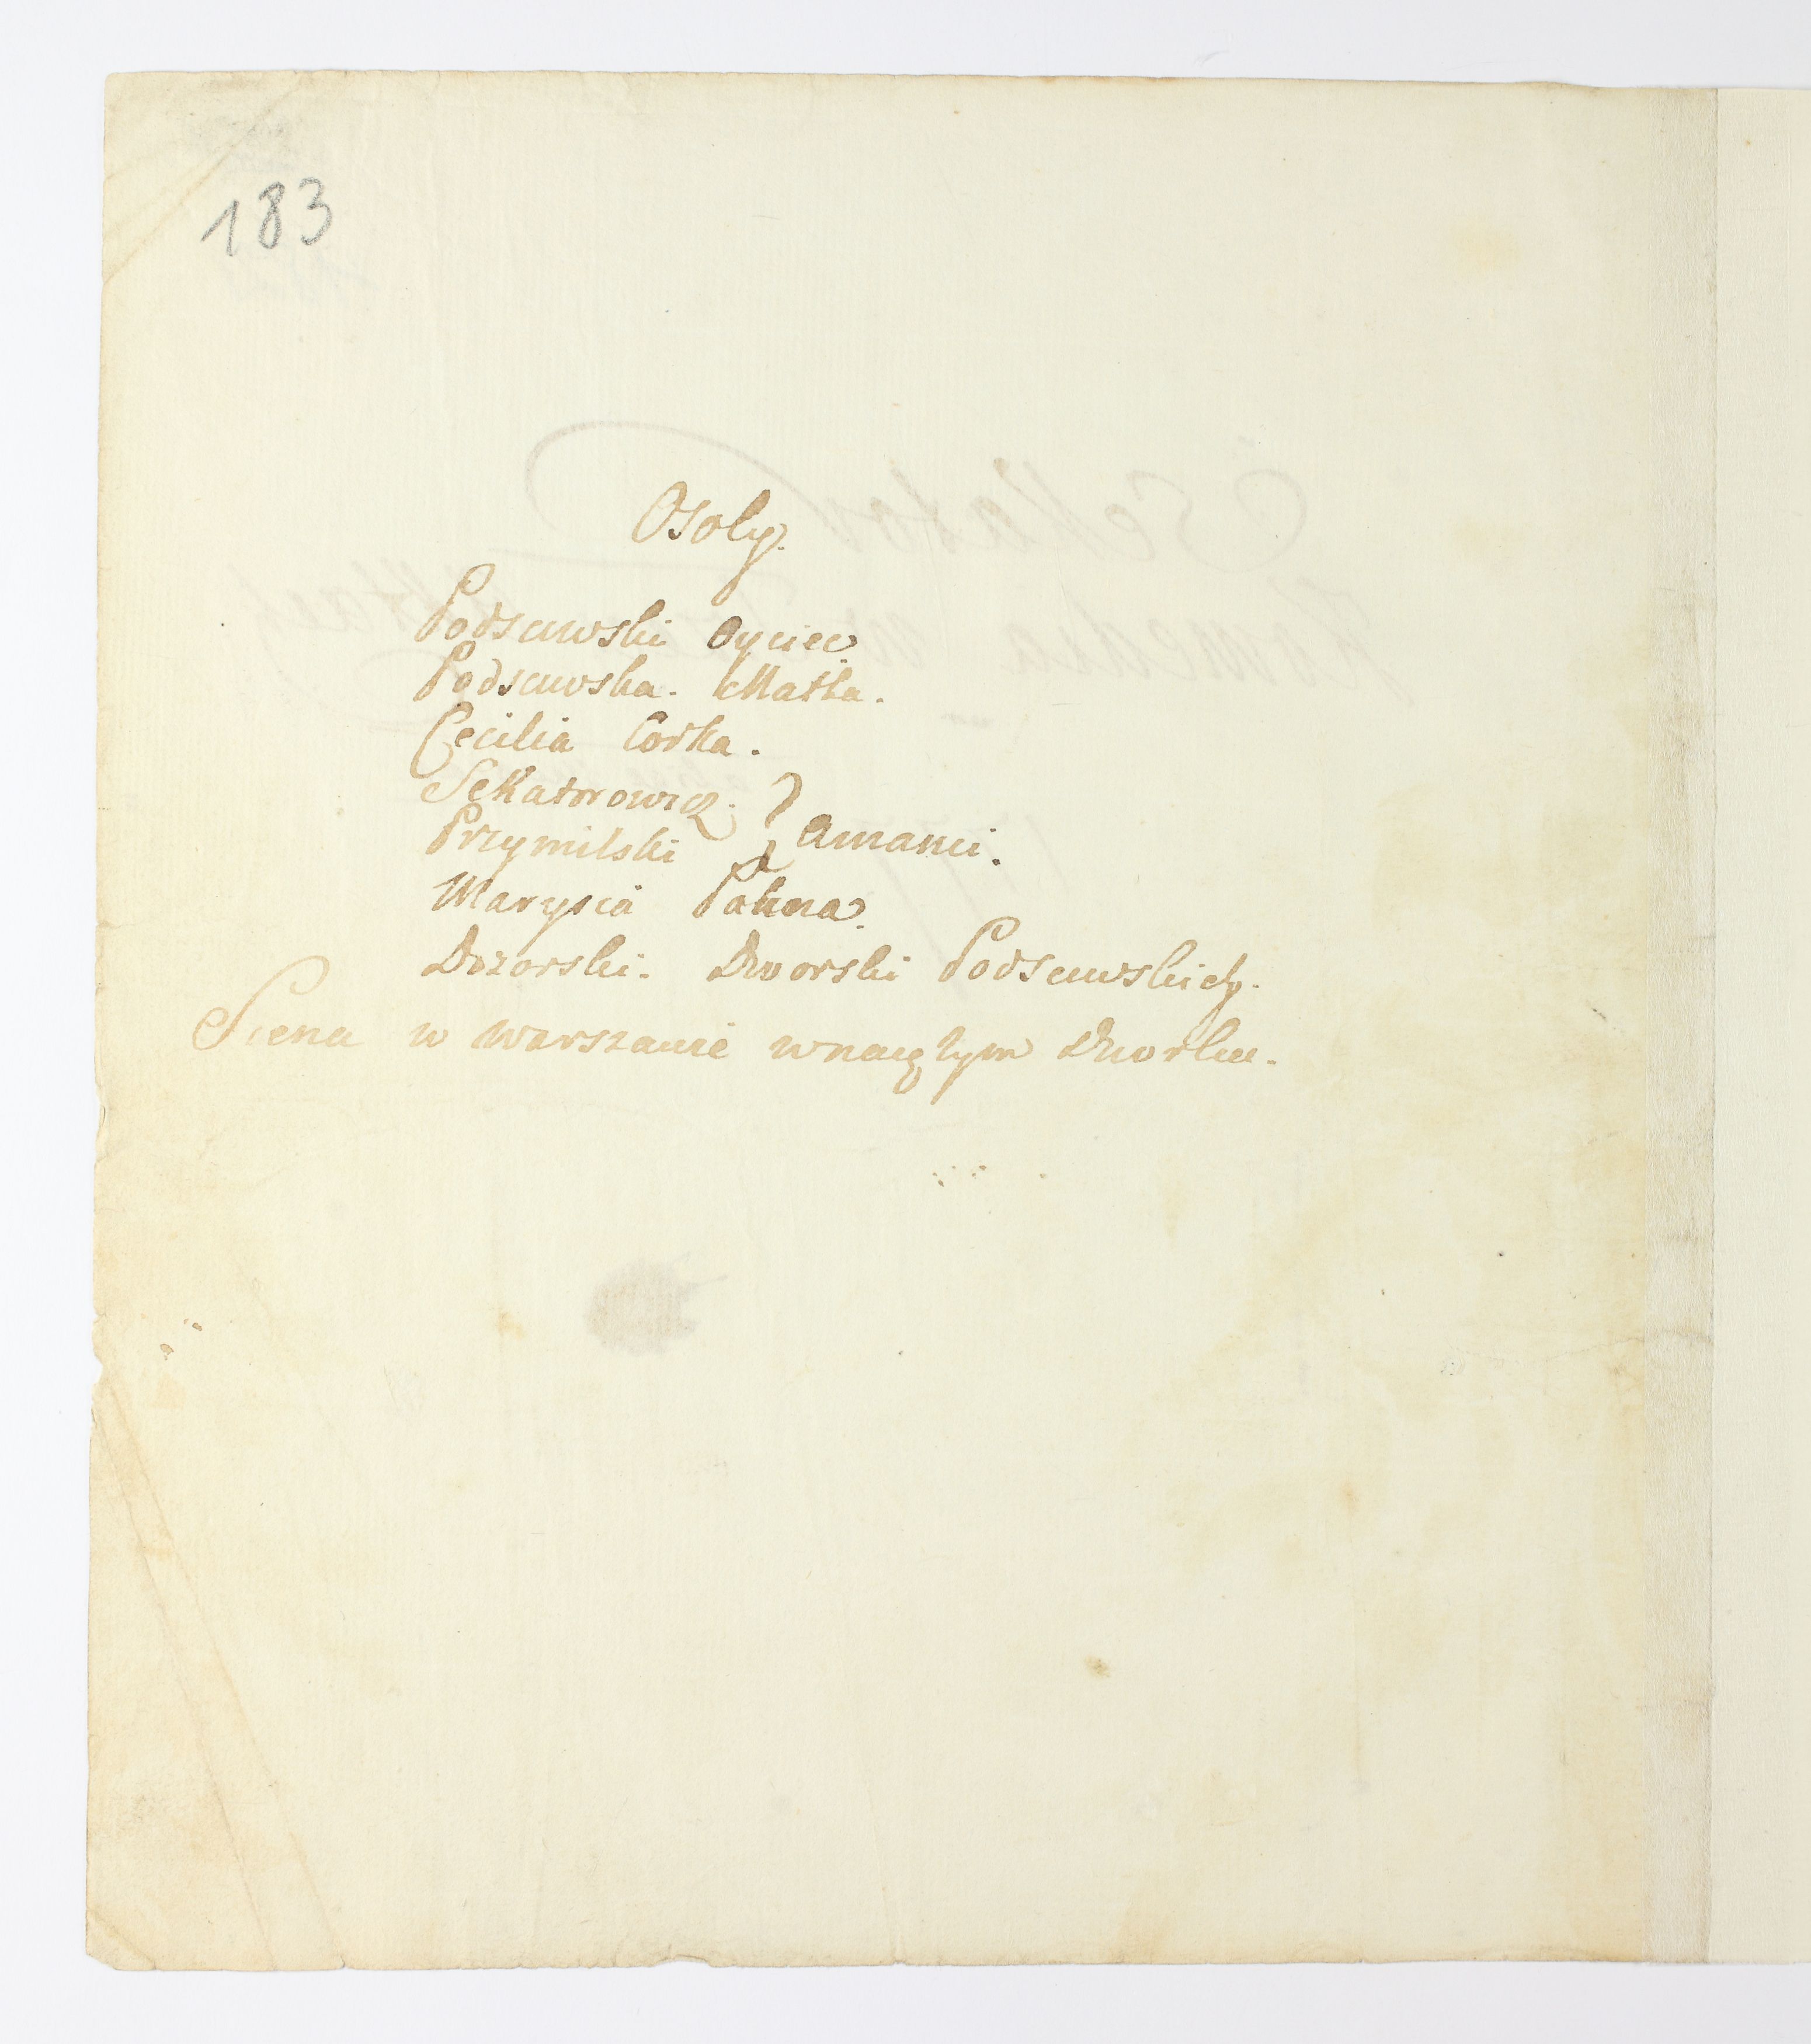 183
Osoby.
Podsęwski Oyciec
Podsęwska. Matka.
Cecilia Corka.
Sekatorowicz.
Przymilski } Amanci.
Marysia Panna.
Dozorski. Dworski Podsęwskich.
Scena w Warszawie wnaiętym Dworku.